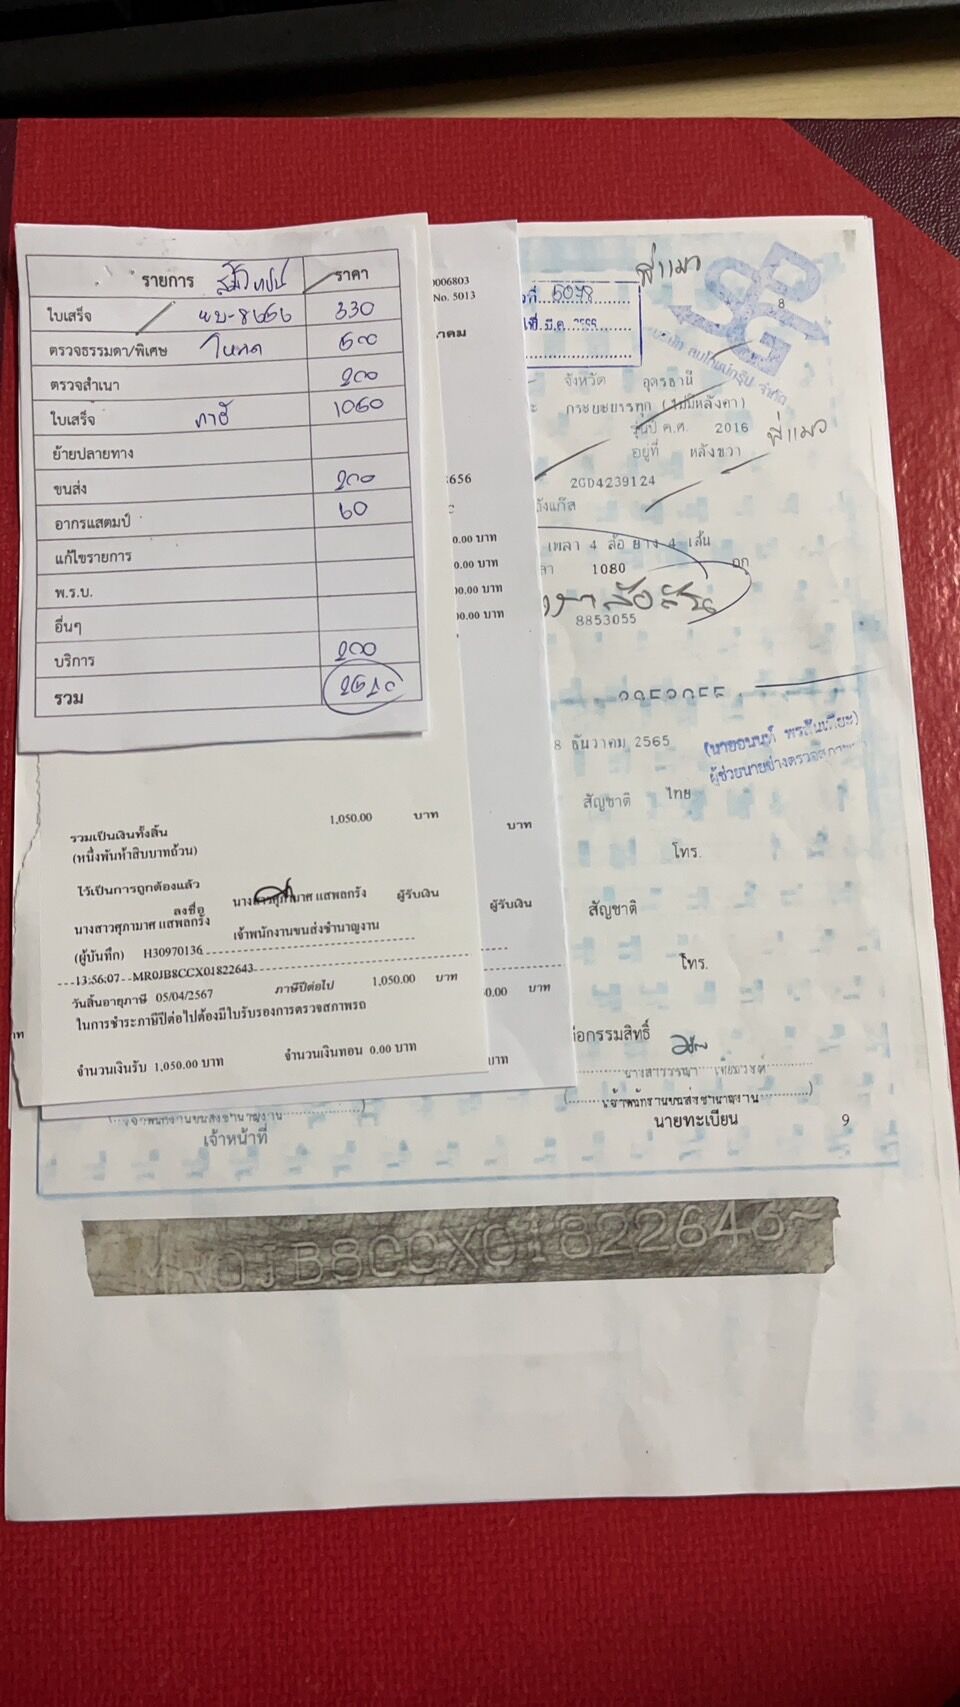 รายการ ราคา
ใบเสร็จ ผบ-8656 330
ตรวจธรรมดา/พิเศษ โหลด 500
ตรวจสำเนา 200
ใบเสร็จ ภาษี 1050
ย้ายปลายทาง
ขนส่ง 200
อากรแสตมป์ 60
แก้ไขรายการ
พ.ร.บ.
อื่นๆ
บริการ 200
รวม
รวมเป็นเงินทั้งสิ้น 1,050.00 บาท
(หนึ่งพันห้าสิบบาทถ้วน)
ไว้เป็นการถูกต้องแล้ว
ลงชื่อ นางสาวศุภามาศ แสพลกรัง ผู้รับเงิน
นางสาวศุภามาศ แสพลกรัง
เจ้าพนักงานขนส่งชำนาญงาน
(ผู้บันทึก) H30970136
13:56:07--MR0JB8CCX01822643
วันสิ้นอายุภาษี 05/04/2567 ภาษีปีต่อไป 1,050.00 บาท
ในการชำระภาษีปีต่อไปต้องมีใบรับรองการตรวจสภาพรถ
จำนวนเงินรับ 1,050.00 บาท จำนวนเงินทอน 0.00 บาท
0006803
No. 5013
าคม
656
0.00 บาท
0.00 บาท
00.00 บาท
00.00 บาท
บาท
ผู้รับเงิน
50.00 บาท
บาท
พี่แมว
8
ที่ 5078
มี.ค. 2566
จังหวัด อุดรธานี
กระบะบรรทุก (ไม่มีหลังคา)
รุ่นปี ค.ศ. 2016
พี่แมว
อยู่ที่ หลังขวา
2GD4239124
ถังแก๊ส
เพลา 4 ล้อ ยาง 4 เส้น
1080 กก
8853055
8 ธันวาคม 2565
(นายอนนท์
ผู้ช่วยนายช่างตรวจสภาพรถ
สัญชาติ ไทย
โทร.
สัญชาติ
โทร.
ถือกรรมสิทธิ์
เจ้าพนักงานขนส่งชำนาญงาน
นายทะเบียน 9
เจ้าพนักงานขนส่งชำนาญงาน
เจ้าหน้าที่
MR0JB8CCX01822646~